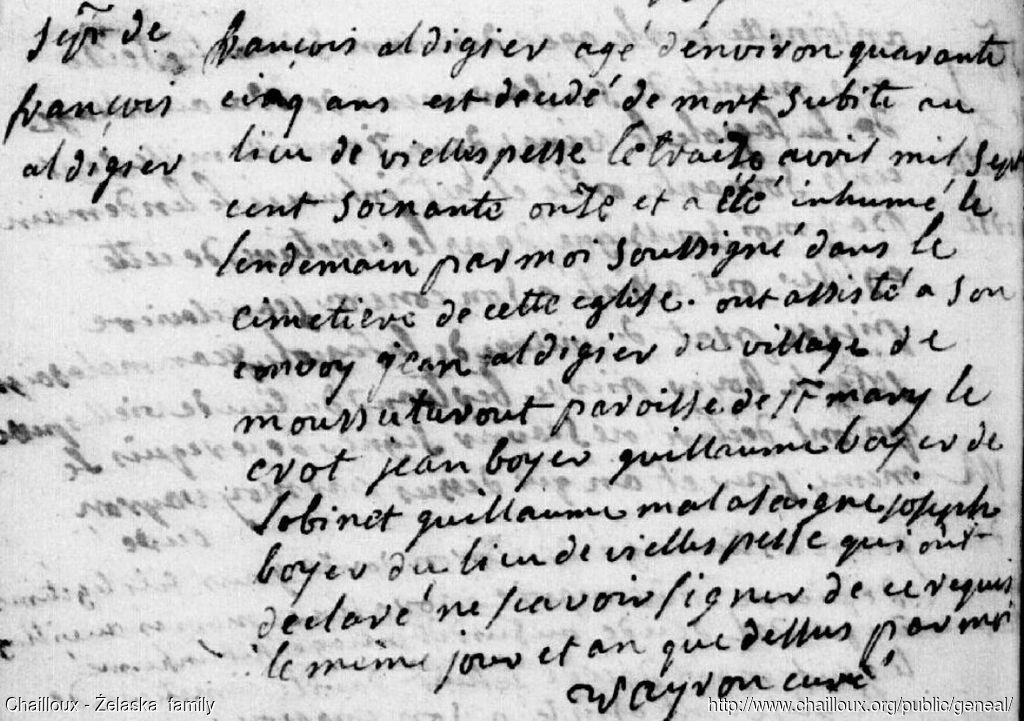 Sepr de
françois
aldigier
françois aldigier agé denviron quarante
cinq ans est decedé de mort subite au
lieu de viellespesse le traize avril mil sept
cent soixante onze et a été inhumé le
lendemain par moi soussigné dans le
cimetiere de cette eglise. ont assisté a son
convoy jean aldigier du village de
moussuturout paroisse de st mary le
crot jean boyer guillaume boyer de
lobinet guillaume malasaigne joseph
boyer du lieu de viellespesse qui ont
declaré ne scavoir signer de ce requis
le meme jour et an que dessus par moi
vayron curé
Chailloux - Żelaska family
http://www.chailloux.org/public/geneal/